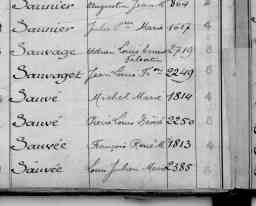 Saunier Augustin Jean 864
Saunier Jules Marie 1617
Sauvage Adrien Louis Ernest 2719
Valentin
Sauvaget Jean Louis Fr 2249
Sauvé Michel Marie 1814
Sauvé Louis Désiré 2250
Sauvée François René M 1813
Sauvée Louis Julien M 2385